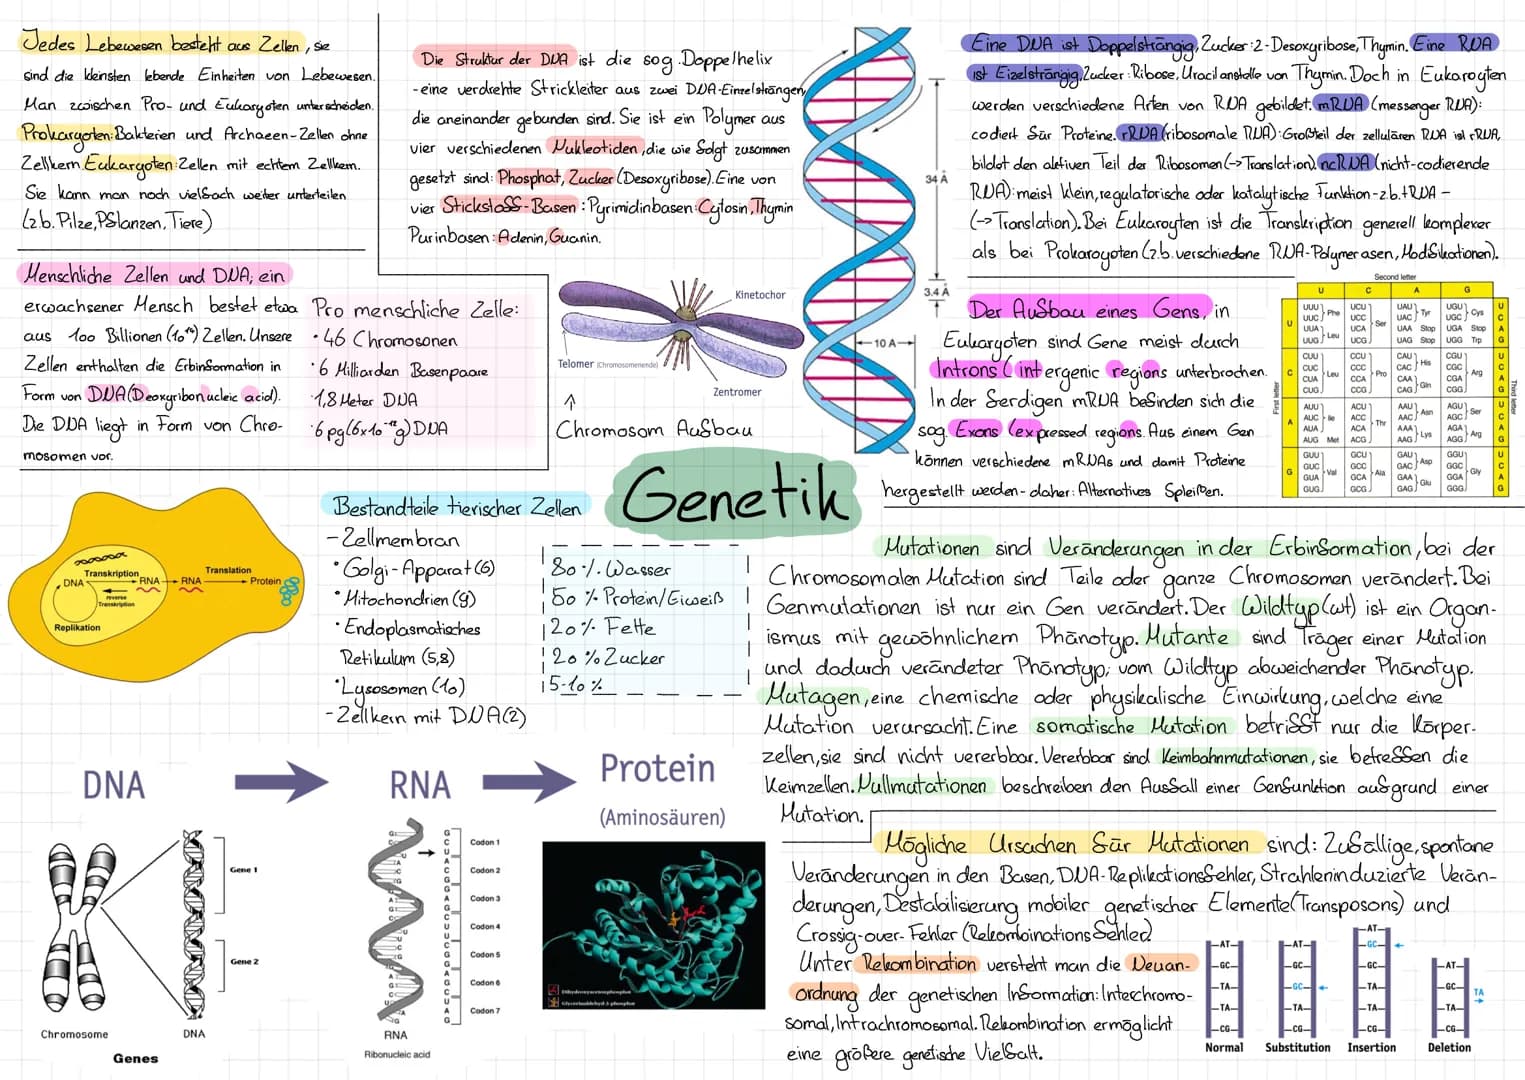 Jedes Lebewesen besteht aus Zellen, sie
sind die kleinsten lebende Einheiten von Lebewesen.
Man zwischen Pro- und Eukaryoten unterscheiden.
Prokaryoten: Bakterien und Archaeen-Zellen ohne
Zellkern. Eukaryoten: Zellen mit echtem Zellkern.
Sie kann man noch vielfach weiter unterteilen
(z.b. Pilze, Pflanzen, Tiere)
Menschliche Zellen und DNA; ein
erwachsener Mensch bestet etwa
aus 100 Billionen (10¹⁴) Zellen. Unsere
Zellen enthalten die Erbinformation in
Form von DNA (Deoxyribonucleic acid).
Die DNA liegt in Form von Chro-
mosomen vor.
Pro menschliche Zelle:
• 46 Chromosonen
• 6 Milliarden Basenpaare
• 1,8 Meter DNA
• 6 pg (6x10⁻¹²g) DNA
Die Struktur der DNA ist die sog. Doppelhelix
- eine verdrehte Strickleiter aus zwei DNA-Einzelsträngen,
die aneinander gebunden sind. Sie ist ein Polymer aus
vier verschiedenen Nukleotiden, die wie folgt zusammen
gesetzt sind: Phosphat, Zucker (Desoxyribose). Eine von
vier Stickstoff-Basen: Pyrimidinbasen: Cytosin, Thymin
Purinbasen: Adenin, Guanin.
Kinetochor
Telomer (Chromosomenende)
Zentromer
↑
Chromosom Aufbau
34 Å
3.4 Å
10 A
Eine DNA ist Doppelsträngig, Zucker: 2-Desoxyribose, Thymin. Eine RNA
ist Eizelsträngig, Zucker: Ribose, Uracil anstelle von Thymin. Doch in Eukaroyten
werden verschiedene Arten von RNA gebildet. mRNA (messenger RNA):
codiert für Proteine. rRNA (ribosomale RNA): Großteil der zellulären RNA ist rRNA,
bildet den aktiven Teil der Ribosomen (->Translation). ncRNA (nicht-codierende
RNA): meist klein, regulatorische oder katalytische Funktion-z.b. tRNA -
(->Translation). Bei Eukaroyten ist die Transkription generell komplexer
als bei Prokaroyoten (z.b. verschiedene RNA-Polymerasen, Modfikationen).
Der Aufbau eines Gens, in
Eukaryoten sind Gene meist durch
Introns (intergenic regions unterbrochen.
In der ferdigen mRNA befinden sich die
sog. Exons (expressed regions. Aus einem Gen
können verschiedene mRNAs und damit Proteine
hergestellt werden - daher: Alternatives Spleißen.
Second letter
U C A G
First letter
Third letter
U
UUU UCU UAU UGU U
UUC Phe UCC UAC Tyr UGC Cys C
UUA UCA Ser UAA Stop UGA Stop A
UUG Leu UCG UAG Stop UGG Trp G
C
CUU CCU CAU CGU U
CUC CCC CAC His CGC C
CUA Leu CCA Pro CAA CGA Arg A
CUG CCG CAG Gln CGG G
A
AUU ACU AAU AGU U
AUC Ile ACC AAC Asn AGC Ser C
AUA ACA Thr AAA AGA A
AUG Met ACG AAG Lys AGG Arg G
G
GUU GCU GAU GGU U
GUC GCC GAC Asp GGC C
GUA Val GCA Ala GAA GGA Gly A
GUG GCG GAG Glu GGG G
Genetik
DNA
Transkription
RNA
RNA
Translation
Protein
reverse
Transkription
Replikation
Bestandteile tierischer Zellen
- Zellmembran
• Golgi-Apparat (6)
• Mitochondrien (9)
• Endoplasmatisches
Retikulum (5,8)
• Lysosomen (10)
- Zellkern mit DNA (2)
80 % Wasser
50 % Protein/Eiweiß
20 % Fette
20 % Zucker
5-10 %
Mutationen sind Veränderungen in der Erbinformation, bei der
Chromosomalen Mutation sind Teile oder ganze Chromosomen verändert. Bei
Genmutationen ist nur ein Gen verändert. Der Wildtyp (wt) ist ein Organ-
ismus mit gewöhnlichem Phänotyp. Mutante sind Träger einer Mutation
und dadurch verändeter Phänotyp; vom Wildtyp abweichender Phänotyp.
Mutagen, eine chemische oder physikalische Einwirkung, welche eine
Mutation verursacht. Eine somatische Mutation betrifft nur die Körper-
zellen, sie sind nicht vererbbar. Vererbbar sind Keimbahnmutationen, sie betreffen die
Keimzellen. Nullmutationen beschreiben den Ausfall einer Genfunktion aufgrund einer
Mutation.
Mögliche Ursachen für Mutationen sind: Zufällige, spontane
Veränderungen in den Basen, DNA-Replikationsfehler, Strahleninduzierte Verän-
derungen, Destabilisierung mobiler genetischer Elemente (Transposons) und
Crossig-over-Fehler (Rekombinationsfehler).
Unter Rekombination versteht man die Neuan-
ordnung der genetischen Information: Interchromo-
somal, Intrachromosomal. Rekombination ermöglicht
eine größere genetische Vielfalt.
DNA
RNA
Protein
(Aminosäuren)
Gene 1
Gene 2
Chromosome
DNA
Genes
Codon 1
Codon 2
Codon 3
Codon 4
Codon 5
Codon 6
Codon 7
RNA
Ribonucleic acid
Dihydroxyacetonphosphat
Glycerinaldehyd-3-phosphat
AT AT AT AT
GC GC GC GC
TA GC GC TA
TA TA TA TA
CG CG TA CG
CG
Normal Substitution Insertion Deletion